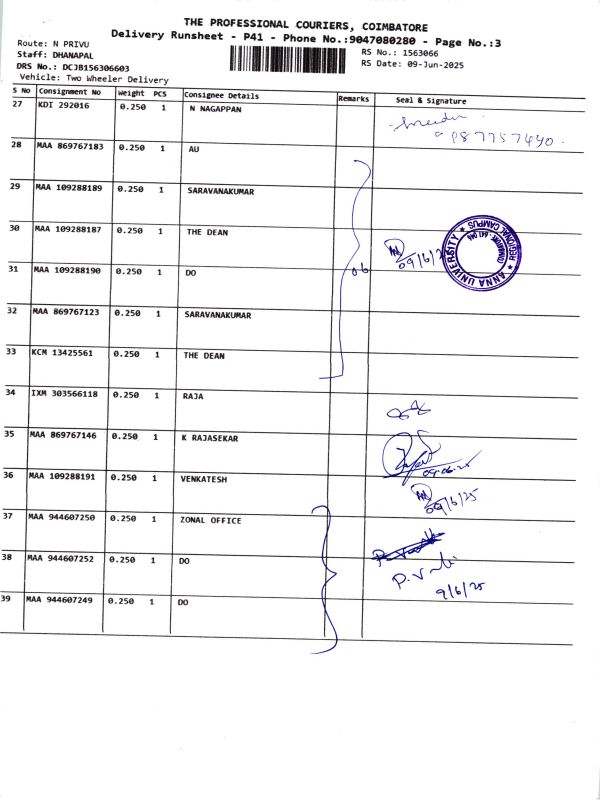 THE PROFESSIONAL COURIERS, COIMBATORE
Delivery Runsheet - P41 - Phone No.:9047080280 - Page No.:3
Route: N PRIVU
Staff: DHANAPAL
DRS No.: DCJB156306603
Vehicle: Two Wheeler Delivery
RS No.: 1563066
RS Date: 09-Jun-2025
S No Consignment No Weight PCS Consignee Details Remarks Seal & Signature
27 KDI 292016 0.250 1 N NAGAPPAN
28 MAA 869767183 0.250 1 AU
29 MAA 109288189 0.250 1 SARAVANAKUMAR
30 MAA 109288187 0.250 1 THE DEAN
09/6/2
ANNA UNIVERSITY ★ REGIONAL CAMPUS ★
COIMBATORE - 641 046
31 MAA 109288190 0.250 1 DO 06
32 MAA 869767123 0.250 1 SARAVANAKUMAR
33 KCM 13425561 0.250 1 THE DEAN
34 IXM 303566118 0.250 1 RAJA
35 MAA 869767146 0.250 1 K RAJASEKAR
09.06.25
36 MAA 109288191 0.250 1 VENKATESH
09/6/25
37 MAA 944607250 0.250 1 ZONAL OFFICE
38 MAA 944607252 0.250 1 DO
9/6/25
39 MAA 944607249 0.250 1 DO